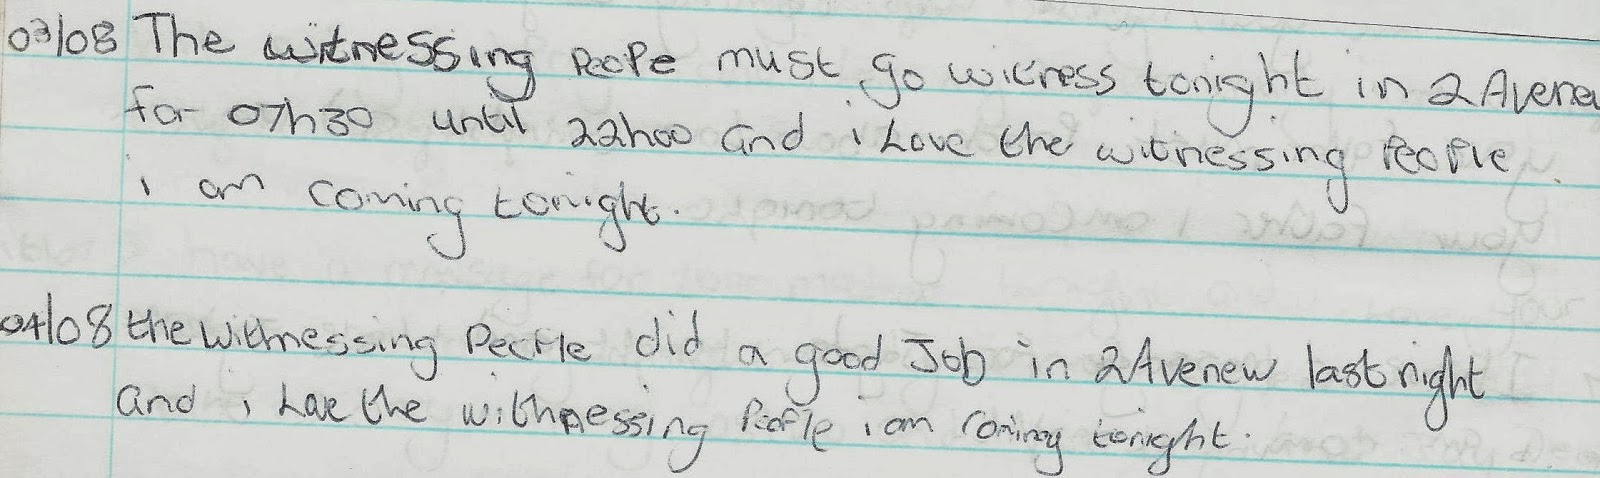 03/08 The witnessing People must go witness tonight in 2 Avenew
for 07h30 until 22h00 and i Love the witinessing People
i am coming tonight.
04/08 the withnessing People did a good Job in 2 Avenew last night
and i Love the withnessing People i am Coming tonight.